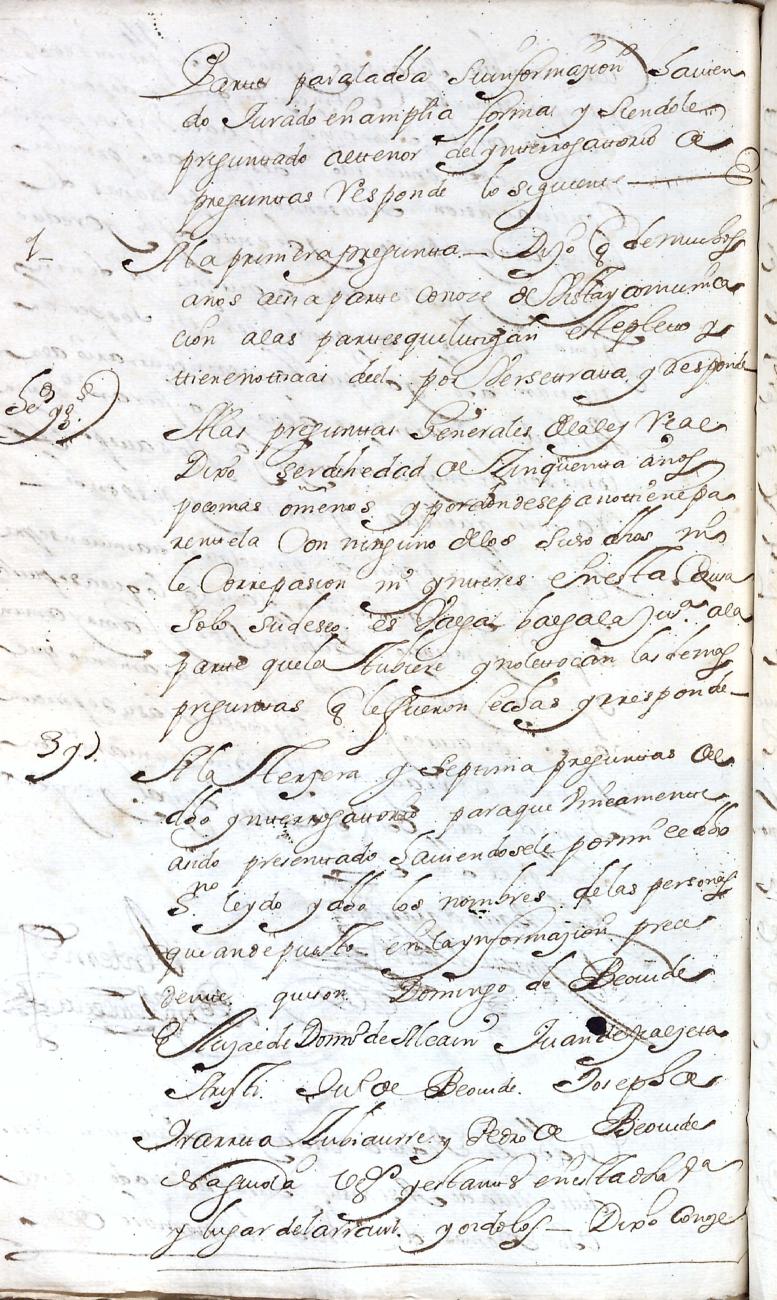 Parte para la dha su informazion havien
do Jurado en amplia forma y siendole
preguntado al tenor del ynterrogatorio de
preguntas responde lo siguiente
1 A la primera pregunta — Dijo q de muchos
años a esta parte conoze de Vista y comunica
cion a las partes que litigan este pleito y
tiene noticia del por Verse trata y Responde
A las preguntas Generales de la ley real
Dixo ser de hedad de Zinquenta años
poco mas o menos y por donde sepa no tiene pa
rentela Con ninguno de los suso dhos ni
le Corre pasion ni ynteres en esta Causa
solo su deseo es Valga balga la Jusª a la
parte que la tubiere y no le tocan las demas
preguntas q le fueron fechas y rresponde
3 y 7. A la terzera y septima preguntas de
dho ynterrogatorio para que Unicamente
a sido presentado haviendosele por mi el dho
Sno leydo y dho los nombres de las personas
que an depuesto en la ynformazion prece
dente que son Domingo de Beovide
Domº de Alcain Juan de
Aristi. Juº de Beovide. Joseph de
Yrarreta Zubiaurre y Pedro de Beovide
y estantes en esta dha Vª
y lugar de Larraul y oidolos — Dixo Conoze